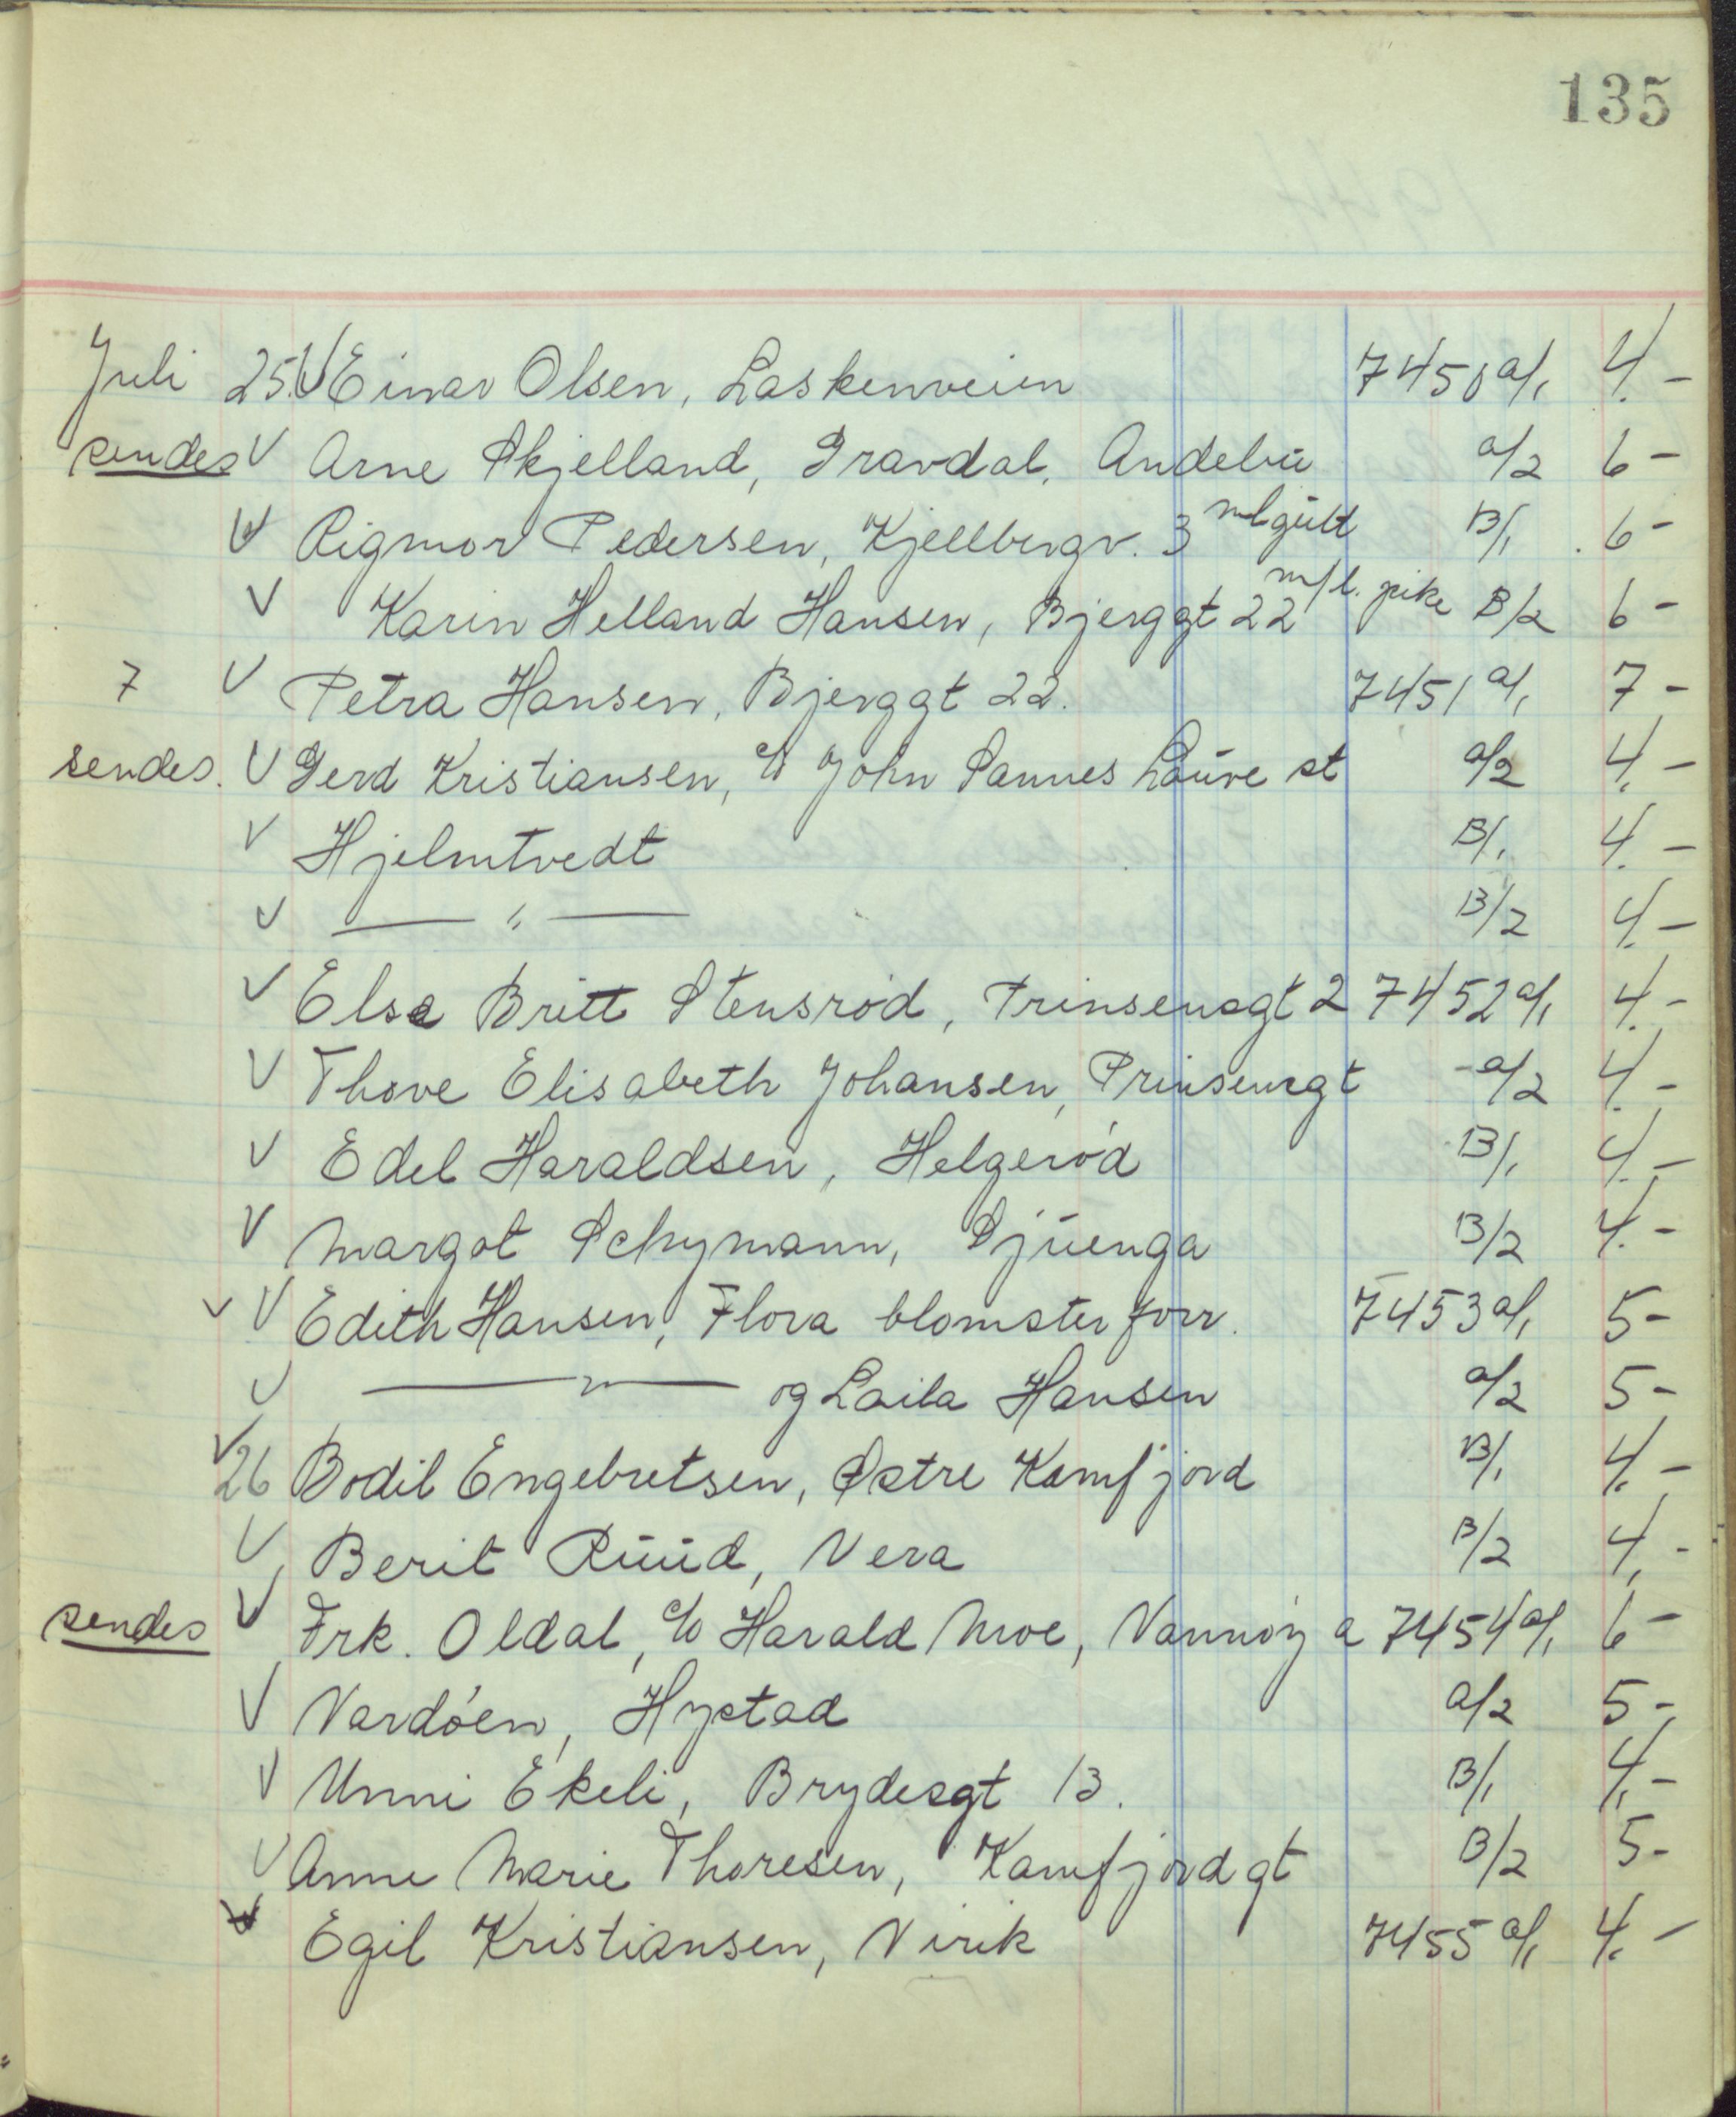 135
Juli 25. V Einar Olsen, Laskenveien 7450 a/1 4.-
sendes V Arne Skjelland, Gravdal, Andebu a/2 6-
V Rigmor Pedersen, Kjellbergv. 3 m/l gutt B/1 6-
V Karin Helland Hansen, Bjerggt 22 m/l. pike B/2 6-
7 V Petra Hansen, Bjerggt 22. 7451 a/1 7-
sendes. V Gerd Kristiansen, c/o John Sannes Lauve st a/2 4.-
V Hjelmtvedt B/1 4.-
V —— " —— B/2 4.-
V Else Britt Stensrød, Prinsensgt 2 7452 a/1 4.-
V Thove Elisabeth Johansen, Prinsensgt a/2 4.-
V Edel Haraldsen, Helgerød B/1 4.-
V Margot Schymann, Sjuenga B/2 4.-
V V Edith Hansen, Flora blomsterforr. 7453 a/1 5-
V —— " —— og Laila Hansen a/2 5-
V 26 Bodil Engebretsen, Østre Kamfjord B/1 4.-
V Berit Ruud, Vera B/2 4.-
sendes V Frk. Oldal, c/o Harald Moe, Vannøy a 7454 a/1 6-
V Vardøen, Hystad a/2 5-
V Unni Ekeli, Brydesgt 13. B/1 4.-
V Anne Marie Thoresen, Kamfjordgt B/2 5-
V Egil Kristiansen, Virik 7455 a/1 4.-